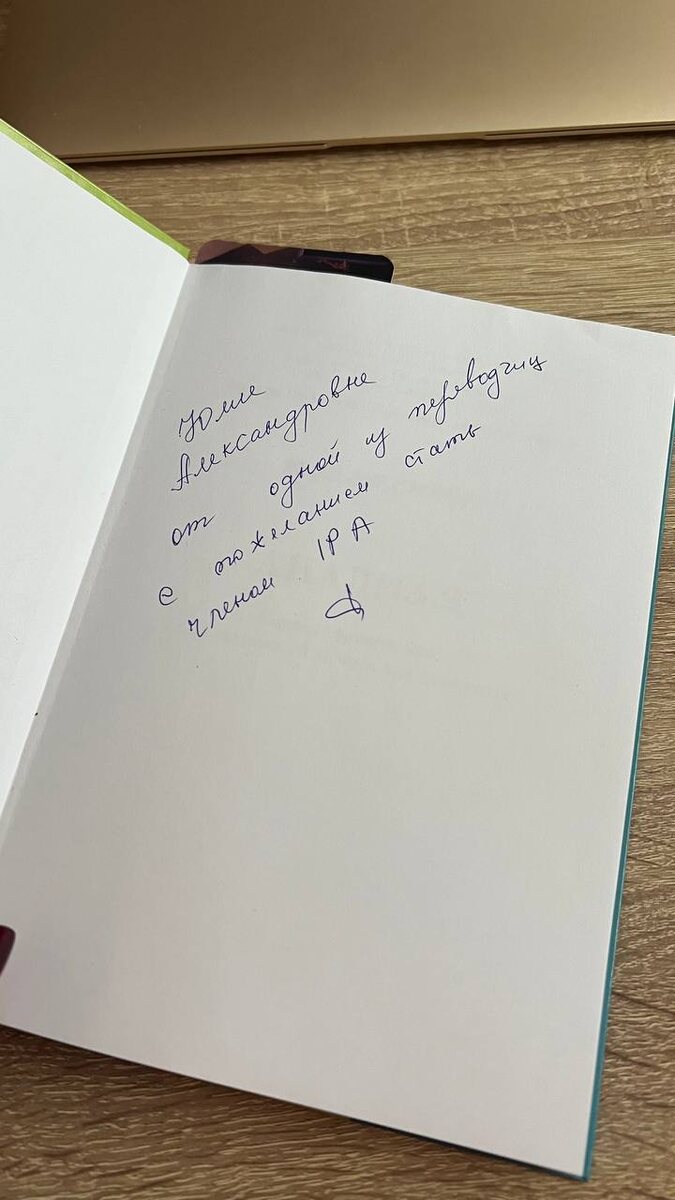 Юлие
Александровне
от одной из переводчиц
с пожеланием стать
членом IPA